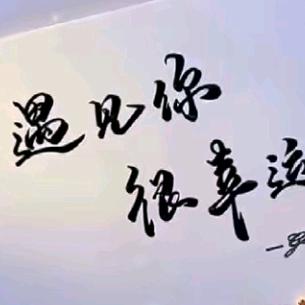 遇见你
很幸运